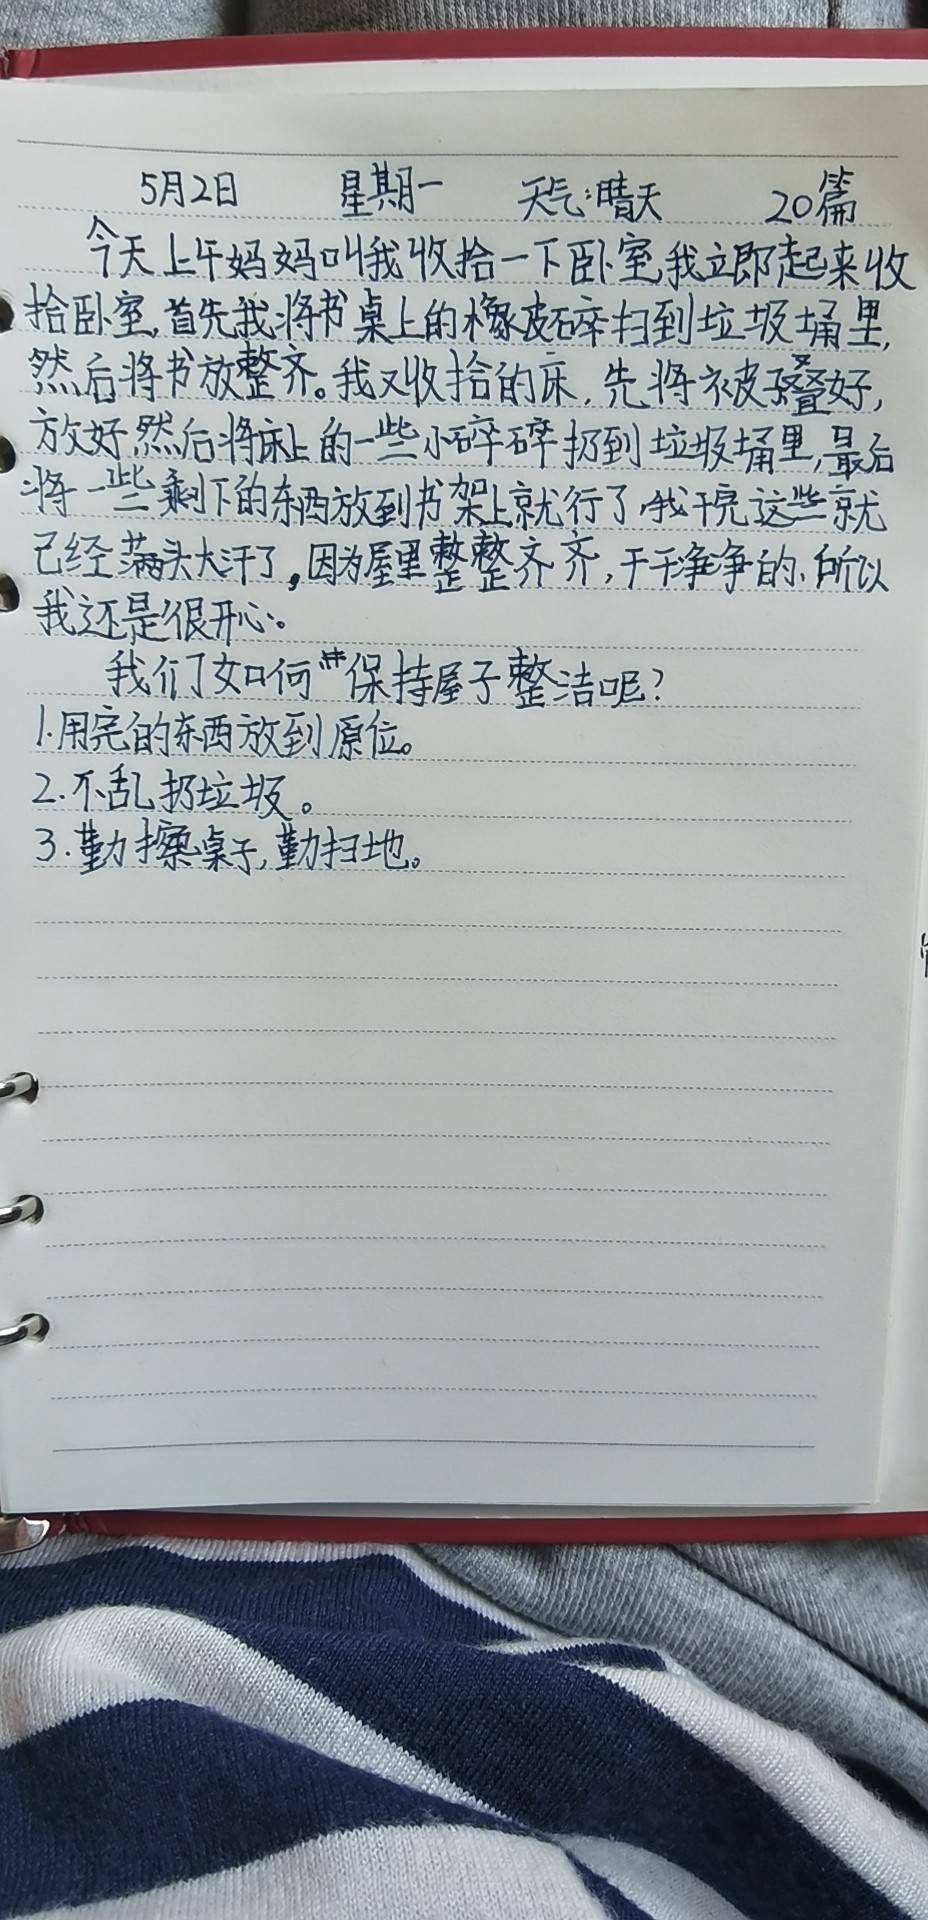 5月2日 星期一 天气:晴天 20篇
今天上午妈妈叫我收拾一下卧室,我立即起来收
拾卧室,首先我将书桌上的橡皮碎扫到垃圾桶里,
然后将书放整齐。我又收拾的床,先将被子叠好,
放好,然后将床上的一些小碎碎扔到垃圾桶里,最后
将一些剩下的东西放到书架上就行了,我干完这些就
已经满头大汗了,因为屋里整整齐齐,干干净净的,所以
我还是很开心。
我们如何保持屋子整洁呢?
1.用完的东西放到原位。
2.不乱扔垃圾。
3.勤擦桌子,勤扫地。